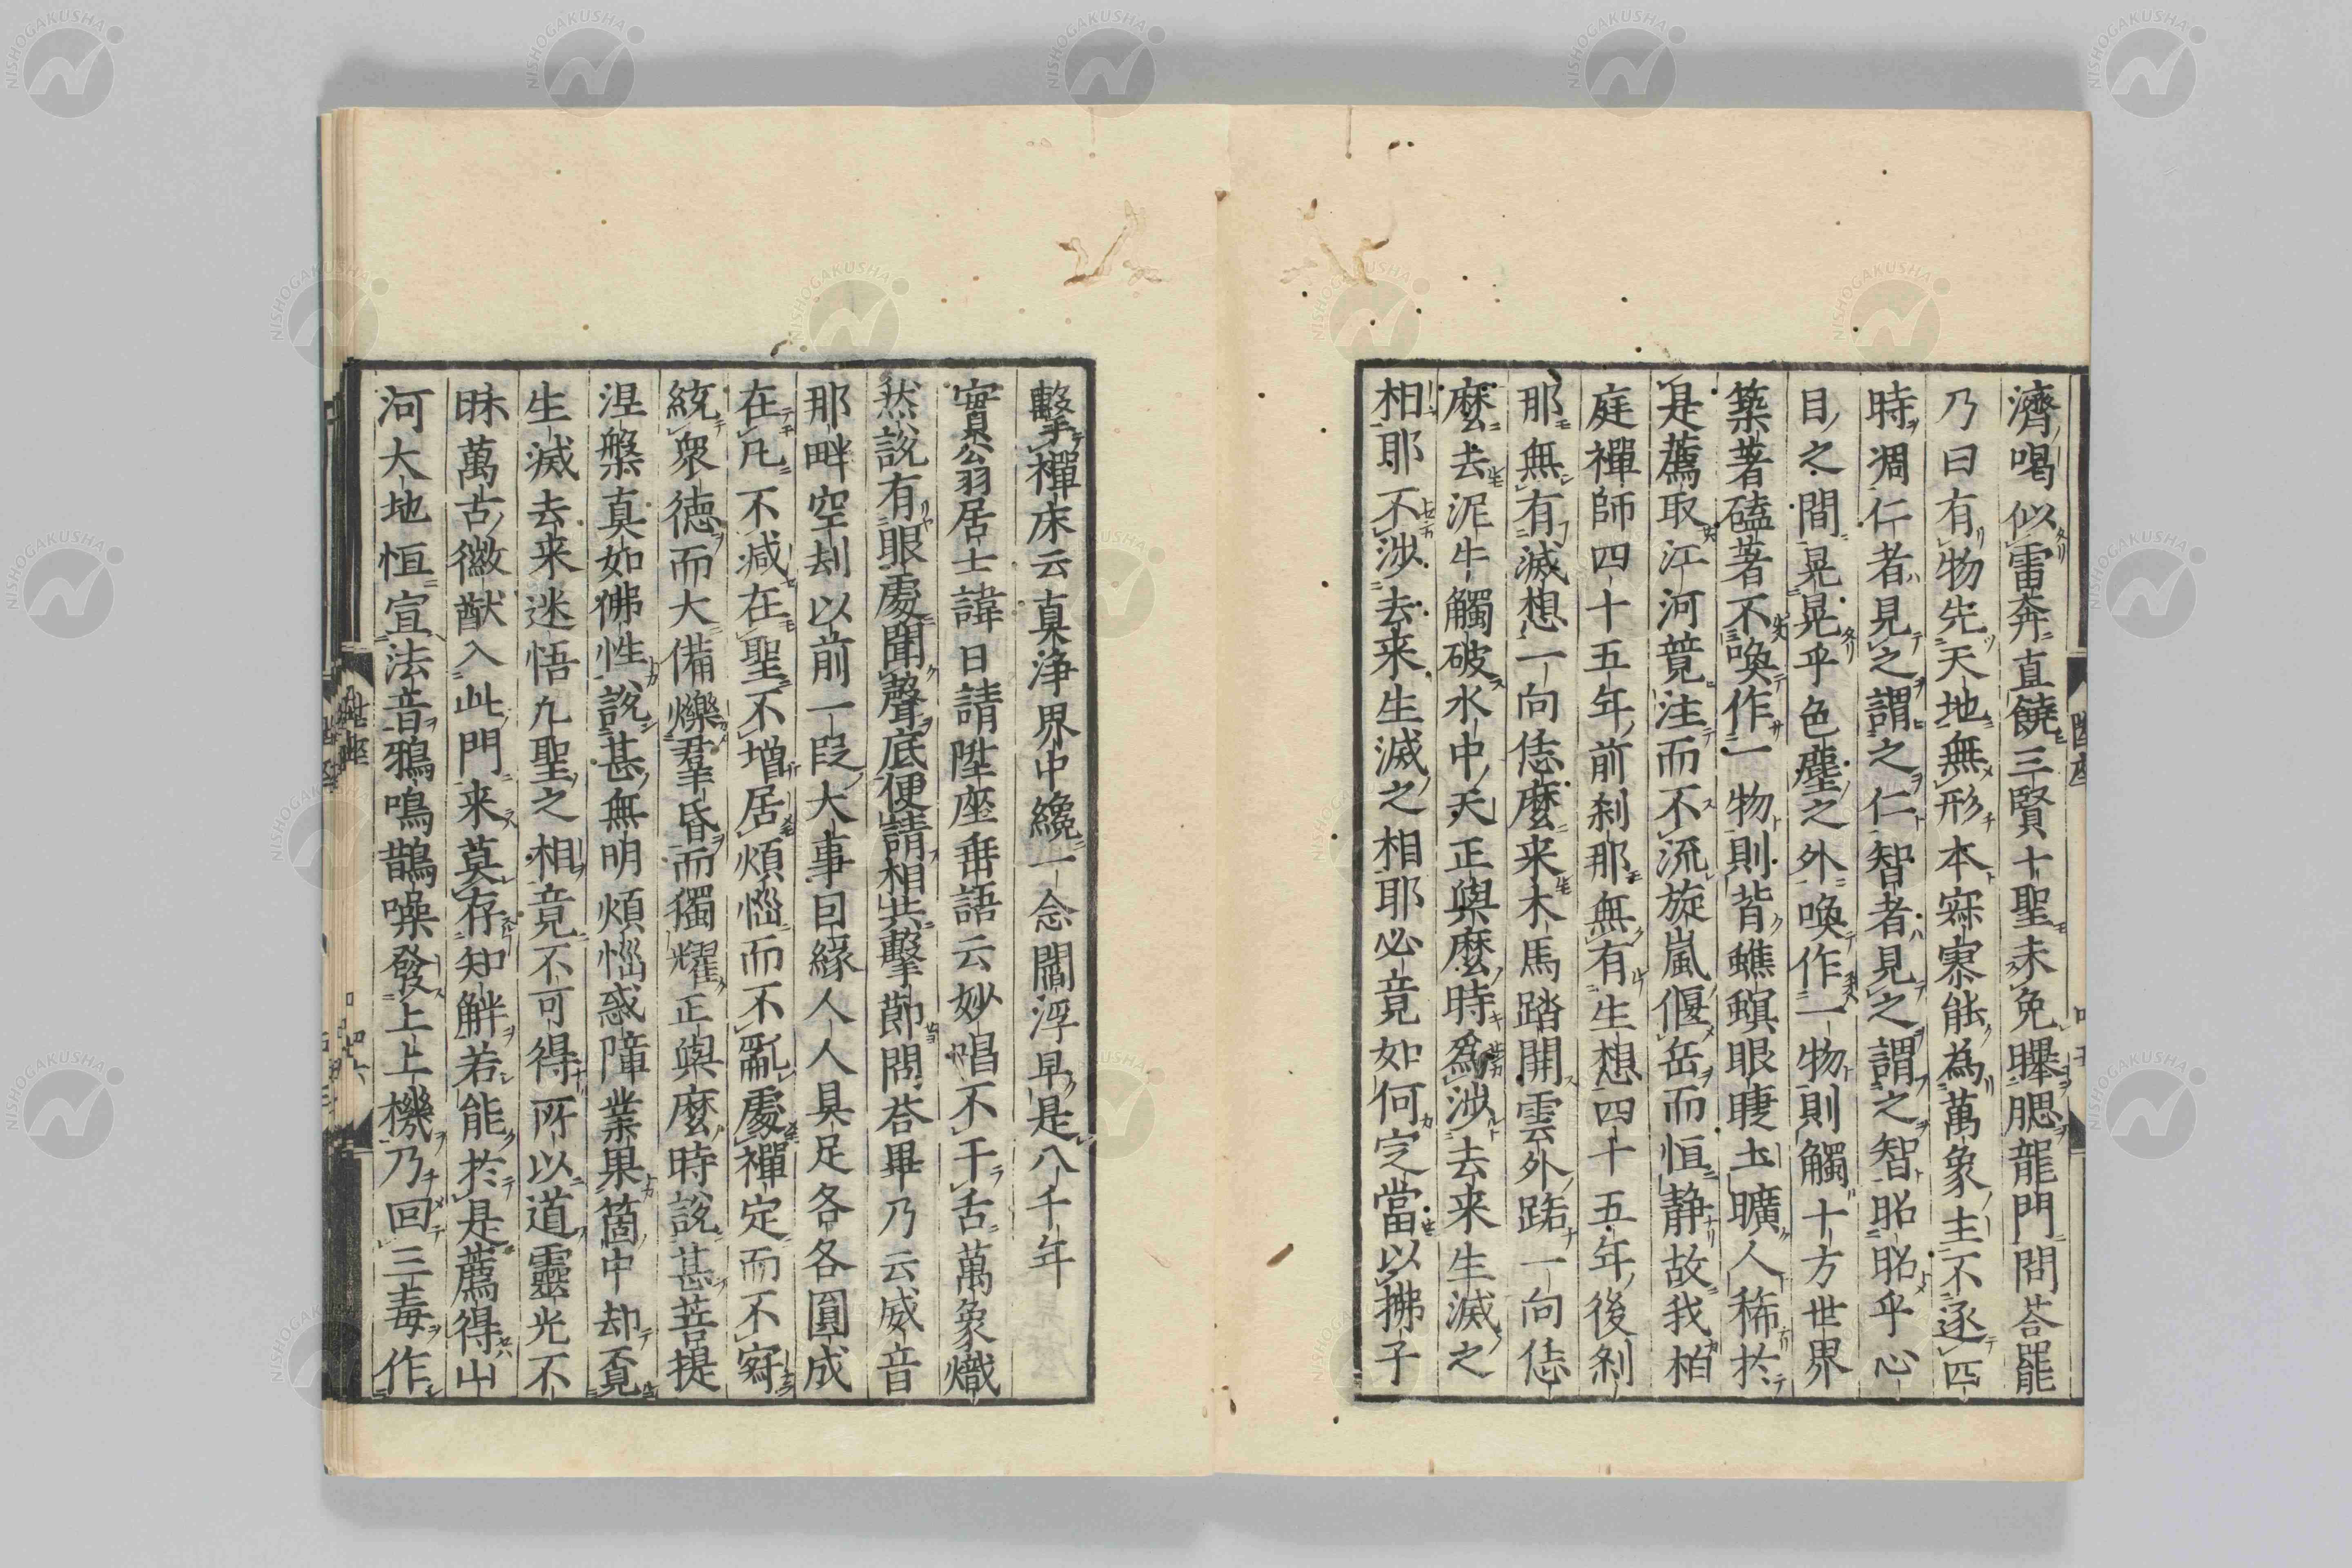 濟喝似雷奔直饒三賢十聖未免曝腮龍門問荅罷
乃曰有物先天地無形本寂寥能為萬象主不逐四
時凋仁者見之謂之仁智者見之謂之智昭昭乎心
目之間晃晃乎色塵之外喚作一物則觸十方世界
築著磕著不喚作一物則背蟭螟眼睫土曠人稀於
是薦取江河競注而不流旋嵐偃岳而恒静故我栢
庭禪師四十五年前刹那無有生想四十五年後刹
那無有滅想一向恁麼来木馬踏開雲外路一向恁
麼去泥牛觸破水中天正與麼時為涉去来生滅之
相耶不涉去来生滅之相耶必竟如何定當以拂子
擊禪床云真浄界中纔一念閻浮早是八千年
實翁居士諱日請陞座垂語云妙唱不干舌萬象熾
然說有眼處聞聲底便請相共擊節問荅畢乃云威音
那畔空劫以前一段大事因緣人人具足各各圓成
在凡不减在聖不增居煩惱而不亂處禪定而不寂
統衆德而大備爍羣昏而獨耀正與麼時說甚菩提
涅槃真如佛性說甚無明煩惱惑障業果箇中却覓
生滅去来迷悟凡聖之相竟不可得所以道靈光不
昧萬古徽猷入此門来莫存知解若能於是薦得山
河大地恒宣法音鴉鳴鵲噪發上上機乃回三毒作